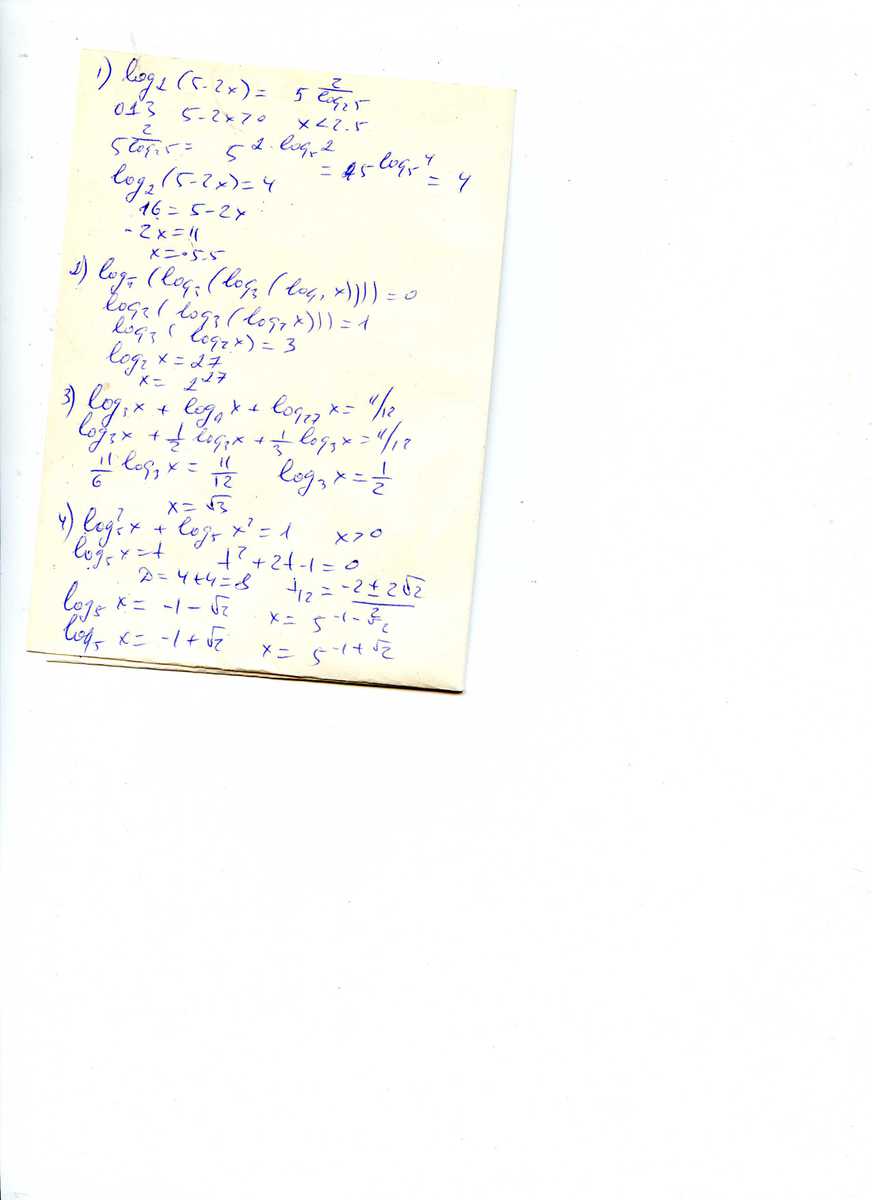 1) log₂(5-2x) = 5^(2/log₂5)
ОДЗ 5-2x>0 x<2.5
5^(2/log₂5) = 5^(2·log₅2) = 5^(log₅4) = 4
log₂(5-2x)=4
16=5-2x
-2x=11
x=-5.5
2) (log₃(log₃( x))))=0
(log₃(log₂x)))=1
log₃(log₂x)=3
log₂x=27
x= 2^27
3) log₃x + log₉x + log₂₇x= 11/12
log₃x + 1/2 log₃x + 1/3 log₃x = 11/12
11/6 log₃x = 11/12 log₃x = 1/2
x=√3
4) log₅²x + log₅x²=1 x>0
log₅x=t t²+2t-1=0
D=4+4=8 t₁₂= (-2±2√2)/2
log₅x= -1-√2 x= 5^(-1-√2)
log₅x= -1+√2 x= 5^(-1+√2)